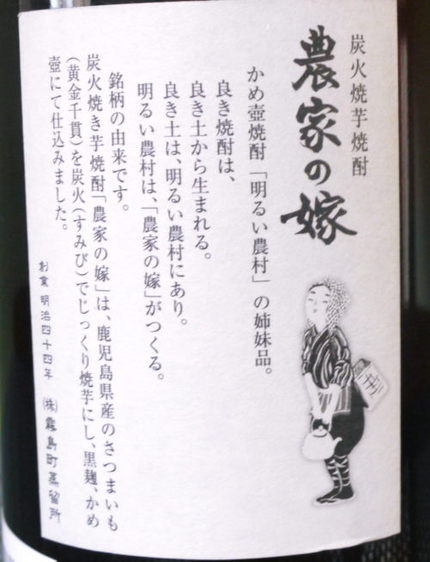 炭火焼芋焼酎
農家の嫁
かめ壺焼酎「明るい農村」の姉妹品。
良き焼酎は、
良き土から生まれる。
良き土は、明るい農村にあり。
明るい農村は、「農家の嫁」がつくる。
銘柄の由来です。
炭火焼き芋焼酎「農家の嫁」は、鹿児島県産のさつまいも
(黄金千貫)を炭火(すみび)でじっくり焼芋にし、黒麹、かめ
壺にて仕込みました。
創業 明治四十四年 ㈱霧島町蒸留所